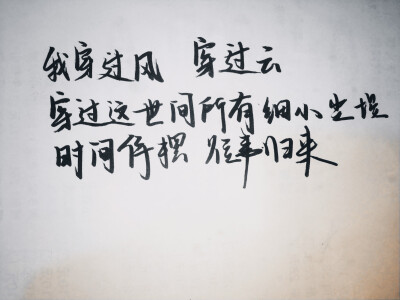 我穿过风 穿过云
穿过这世间所有细小尘埃
时间停摆 往事归来